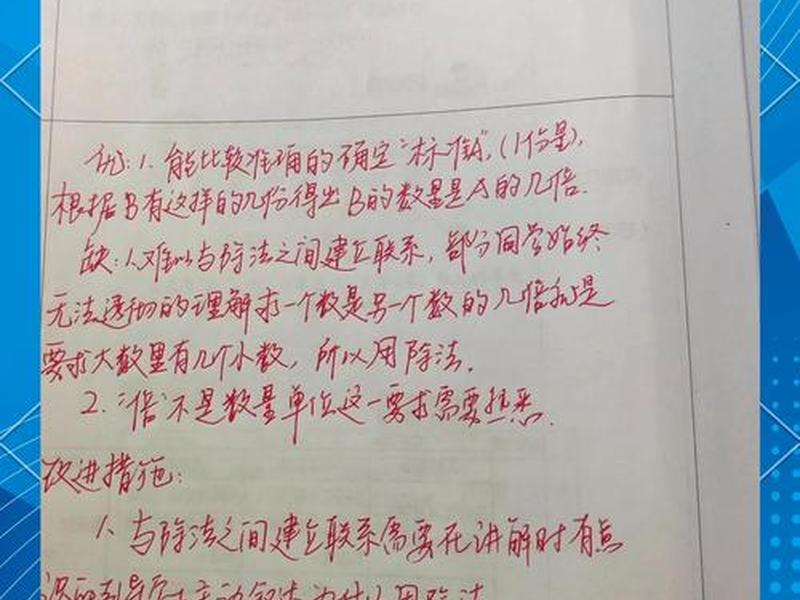 优:1.能比较准确的确定“标准A”,(1份量),
根据B有这样的几份得出B的数量是A的几倍.
缺:1.难以与除法之间建立联系,部分同学始终
无法透彻的理解求一个数是另一个数的几倍就是
要求大数里有几个小数,所以用除法.
2.“倍”不是数量单位这一要求需要熟悉.
改进措施:
1.与除法之间建立联系需要在讲解时有点
主动叙述为什么用除法